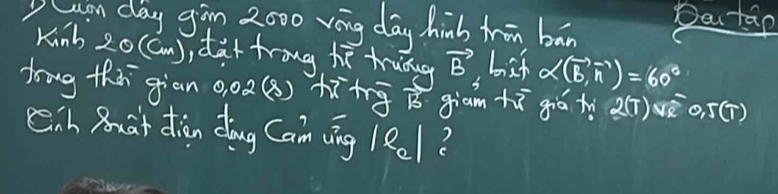 Bài tập
1) Cuộn dây gồm 2000 vòng dây hình tròn bán
Kính 20 (cm), đặt trong từ trường B⃗, biết α(B⃗, n⃗) = 60°
trong thời gian 0,02 (s) từ trg B⃗ giảm từ giá trị 2(T) về 0,5(T)
tính suất điện động Cảm ứng |e_c| ?